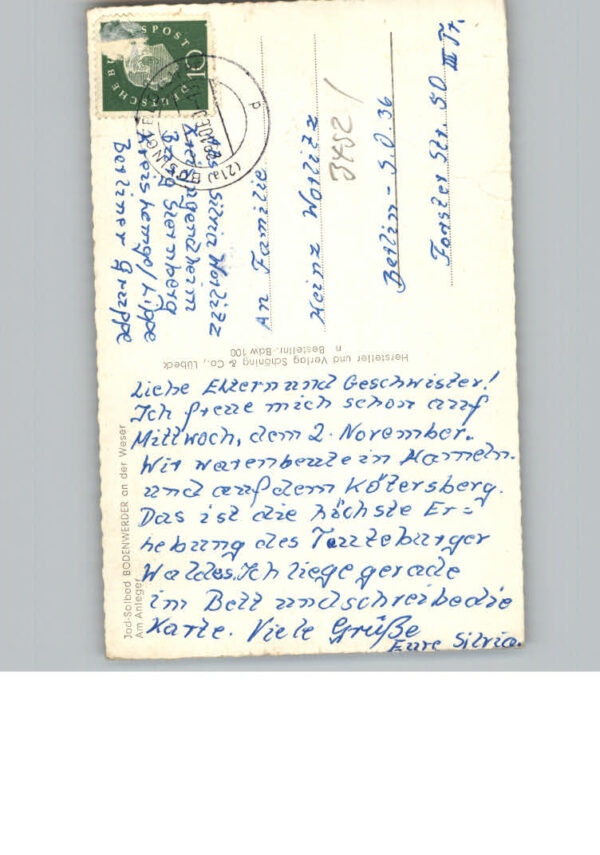 Liebe Eltern und Geschwister!
Ich freue mich schon auf
Mittwoch, dem 2. November.
Wir waren heute in Hameln.
und auf dem Kötersberg.
Das ist die höchste Er=
hebung des Teuteburger
Waldes. Ich liege gerade
im Bett und schreibe die
Karte. Viele Grüße
Eure Silvia.
Jod-Solbad BODENWERDER an der Weser
Am Anleger
Hersteller und Verlag Schöning & Co., Lübeck
n Bestellnr. Bdw 100
Abs. Silvia Worlitz
Kreisjugendheim
Berg Sternberg
Kreishemge/Lippe
Berliner Gruppe
An Familie
Heinz Worlitz
3452/
Berlin-S.O. 36
Forster Str. 50 III Tr.
DEUTSCHE BUNDESPOST
10
(21a)